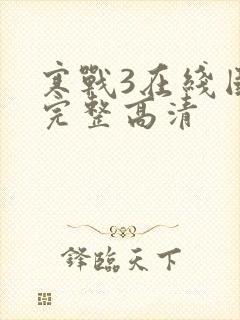 寒戰3在綫
完整高清
鋒臨天下